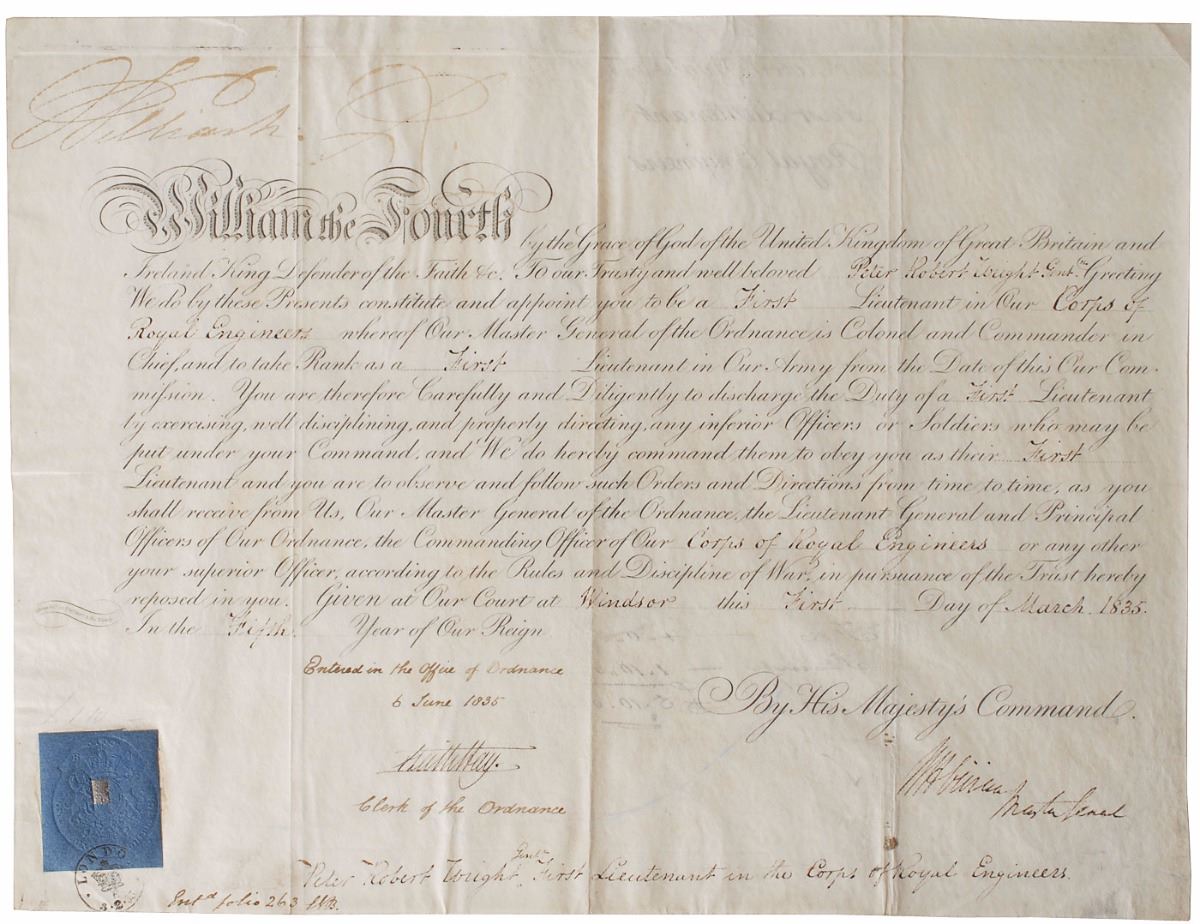 William R
William the Fourth
by the Grace of God of the United Kingdom of Great Britain and
Ireland King Defender of the Faith &c. To our Trusty and well beloved Peter Robert Wright Gentn. Greeting
We do by these Presents constitute and appoint you to be a First Lieutenant in Our Corps of
Royal Engineers whereof Our Master General of the Ordnance is Colonel and Commander in
Chief, and to take Rank as a First Lieutenant in Our Army from the Date of this Our Com-
mission. You are therefore Carefully and Diligently to discharge the Duty of a First Lieutenant
by exercising, well disciplining, and properly directing, any inferior Officers or Soldiers who may be
put under your Command, and We do hereby command them to obey you as their First
Lieutenant and you are to observe and follow such Orders and Directions from time to time, as you
shall receive from Us, Our Master General of the Ordnance, the Lieutenant General and Principal
Officers of Our Ordnance, the Commanding Officer of Our Corps of Royal Engineers or any other
your superior Officer, according to the Rules and Discipline of War, in pursuance of the Trust hereby
reposed in you. Given at Our Court at Windsor this First Day of March 1835.
In the Fifth Year of Our Reign
Entered in the Office of Ordnance
6 June 1835
By His Majesty's Command.
Clerk of the Ordnance
Master Genral
Peter Robert Wright Gentn. First Lieutenant in the Corps of Royal Engineers.
Entd. folio 263